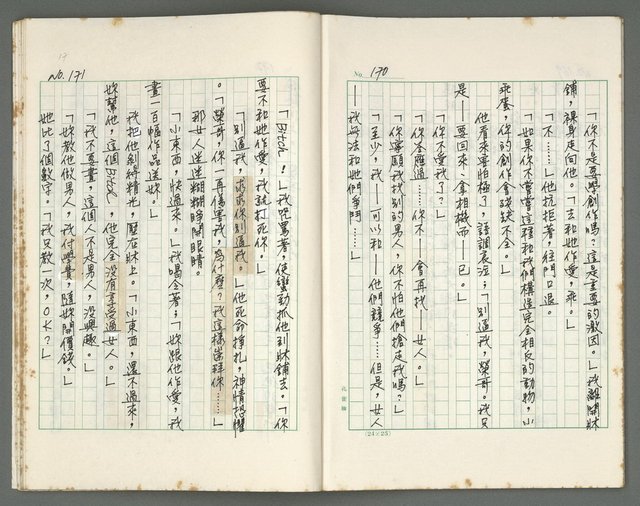 No. 170
「你不是要學創作嗎？這是重要的激因。」我離開牀
鋪，裸身走向他。「去和她作愛，乖。」
「不……」他抗拒著，往門口退。
「如果你不嘗嘗這種和我們構造完全相反的動物，小
乖蛋，你的創作會殘缺不全。」
他看來害怕極了，語調哀泣；「別逼我，榮哥。我只
是——要回來、拿相機而——已。」
「你不愛我了？」
「你答應過……你不——會再找——女人。」
「你寧願我找別的男人，你不怕他們搶走我嗎？」
「至少，我——可以和——他們競爭……但是，女人
——我無法和她們爭鬥——」
(24×25)
No. 171
「Bitch！」我咒罵著，使蠻勁抓他到牀鋪去。「你
要不和她作愛，我就打死你。」
「別逼我，求求你別逼我。」他死命掙扎，神情恐懼
。「榮哥，你一再傷害我，為什麼？我這樣崇拜你……」
那女人迷迷糊糊睜開眼睛。
「小東西，快過來。」我喝令著；「妳跟他作愛，我
畫一百幅作品送妳。」
我把他剝縛精光，壓在牀上。「小東西，還不過來，
妳幫他，這個Bitch，他完全沒有享受過女人。」
「我不要畫，這個人不是男人，沒興趣。」
「妳教他做男人，我付學費，隨妳開價錢。」
她比了個數字。「我只教一次，OK？」